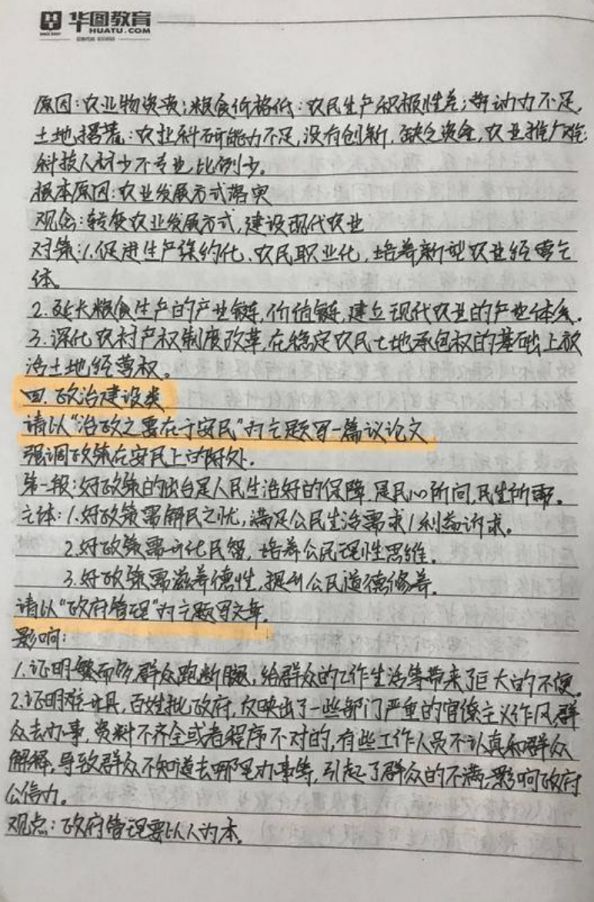 华图教育
HUATU.COM
原因:农业物资贵;粮食价格低:农民生产积极性差;劳动力不足,
土地撂荒:农业科研能力不足,没有创新,缺乏资金,农业推广难;
科技人材少不专业,比例少。
根本原因:农业发展方式落实
观念:转变农业发展方式,建设现代农业
对策:1.促进生产集约化、农民职业化,培养新型农业经营主
体。
2.延长粮食生产的产业链,价值链,建立现代农业的产业体系。
3.深化农村产权制度改革,在稳定农民土地承包权的基础上放
活土地经营权。
四.政治建设类
请以“治政之要在于安民”为主题写一篇议论文
强调政策在安民上的好处.
第一报:好政策的出台是人民生活好的保障,是民心所向,民生所重。
主体:1.好政策需解民之忧,满足公民生活需求/利益诉求。
2.好政策需开化民智,培养公民理性思维。
3.好政策需滋养德性,提升公民道德修养。
请以“政府管理”为主题写文章.
影响:
1.证明繁而多,群众跑断腿,给群众的工作生活等带来了巨大的不便。
2.证明难开具,百姓批政府,反映出了一些部门严重的官僚主义作风,群
众去办事,资料不齐全或者程序不对的,有些工作人员不认真和群众
解释,导致群众不知道去哪里办事等,引起了群众的不满;影响政府
公信力。
观点:政府管理要以人为本.